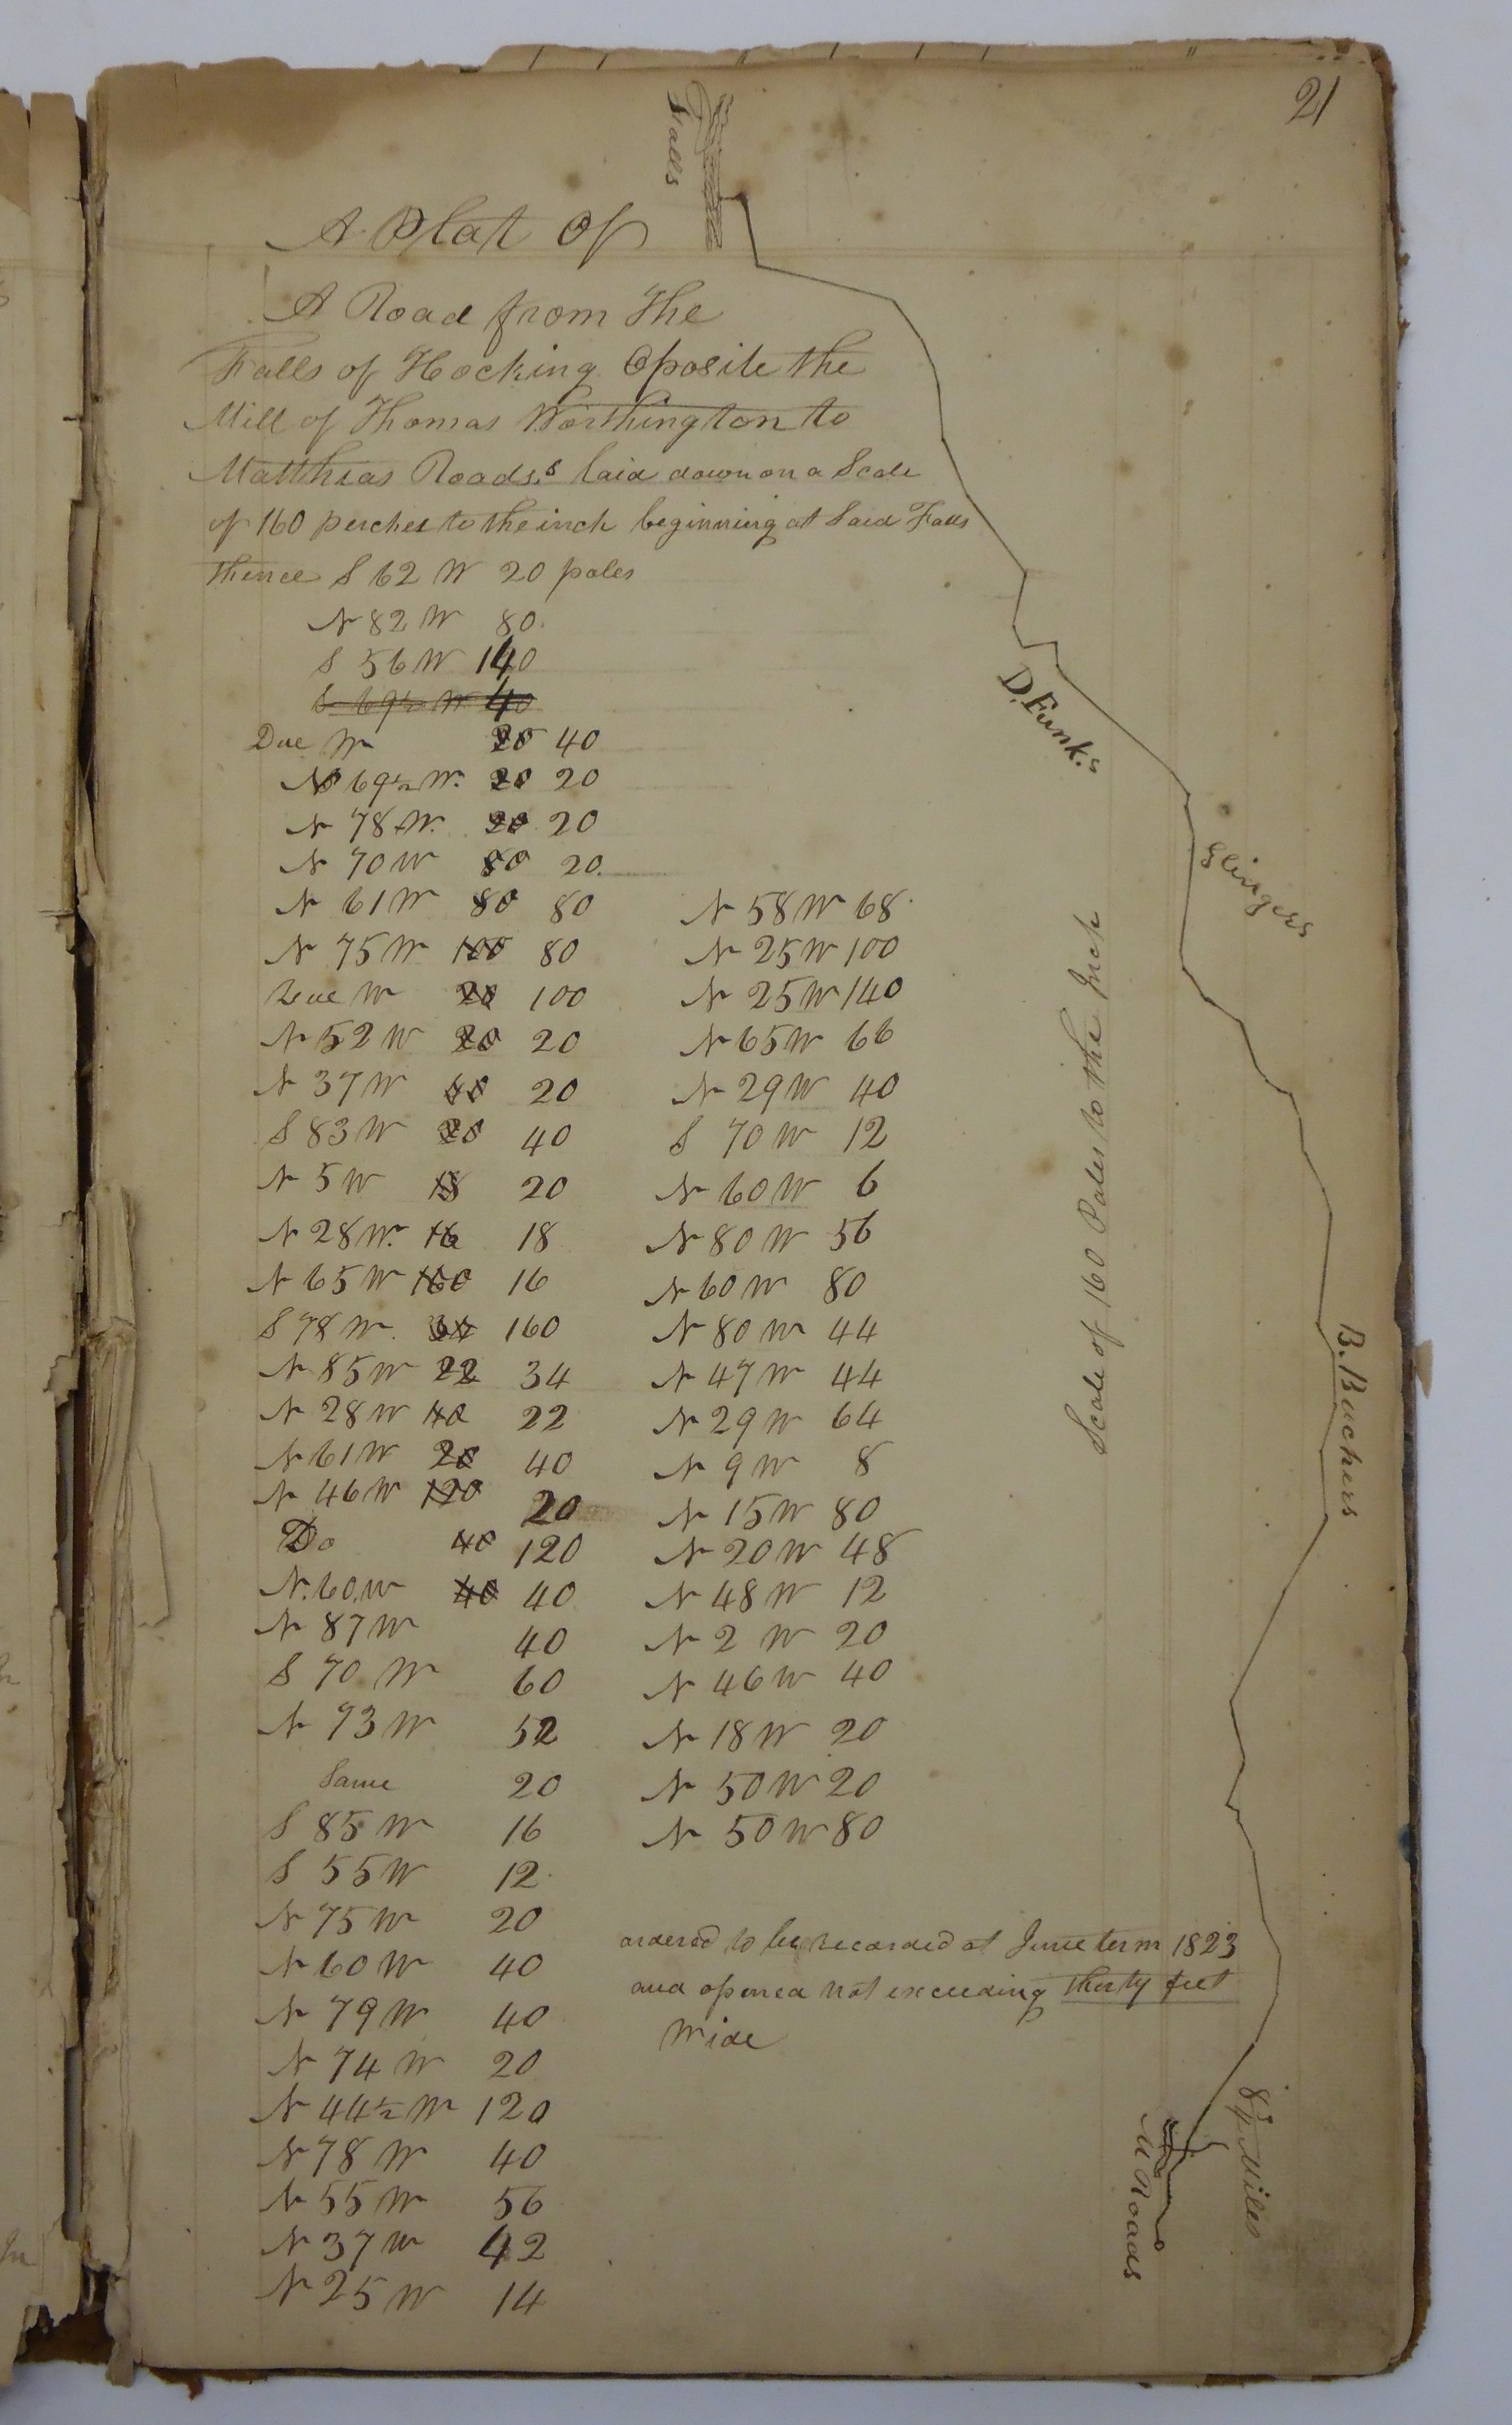 21
Falls
A Plat Of
A Road from The
Falls of Hocking Oposite the
Mill of Thomas Worthington to
Matthias Roads,s laid down on a Scale
of 160 perches to the inch beginning at Said Falls
thence S 62 W 20 poles
N 82 W 80
S 56 W 140
S 69½ W 40
Due W 20 40
N 69½ W. 20 20
N 78 W. 20 20
N 70 W 80 20.
N 61 W 80 80
N 75 W 100 80
Due W 20 100
N 52 W 20 20
N 37 W 40 20
S 83 W 20 40
N 5 W 18 20
N 28 W. 16 18
N 65 W 160 16
S 78 W. 34 160
N 85 W 22 34
N 28 W 40 22
N 61 W 20 40
N 46 W 120 20
Do 40 120
N. 60. W 40 40
N 87 W 40
S 70 W 60
N 73 W 52
Same 20
S 85 W 16
S 55 W 12
N 75 W 20
N 60 W 40
N 79 W 40
N 74 W 20
N 44½ W 120
N 78 W 40
N 55 W 56
N 37 W 42
N 25 W 14
N 58 W 68
N 25 W 100
N 25 W 140
N 65 W 66
N 29 W 40
S 70 W 12
N 60 W 6
N 80 W 56
N 60 W 80
N 80 W 44
N 47 W 44
N 29 W 64
N 9 W 8
N 15 W 80
N 20 W 48
N 48 W 12
N 2 W 20
N 46 W 40
N 18 W 20
N 50 W 20
N 50 W 80
ordered to be recorded at June term 1823
and opened not exceeding thirty feet
Wide
D. Funk.s
Slingers
Scale of 160 Poles to the Inch
B. Bachers
Miles
M Roads